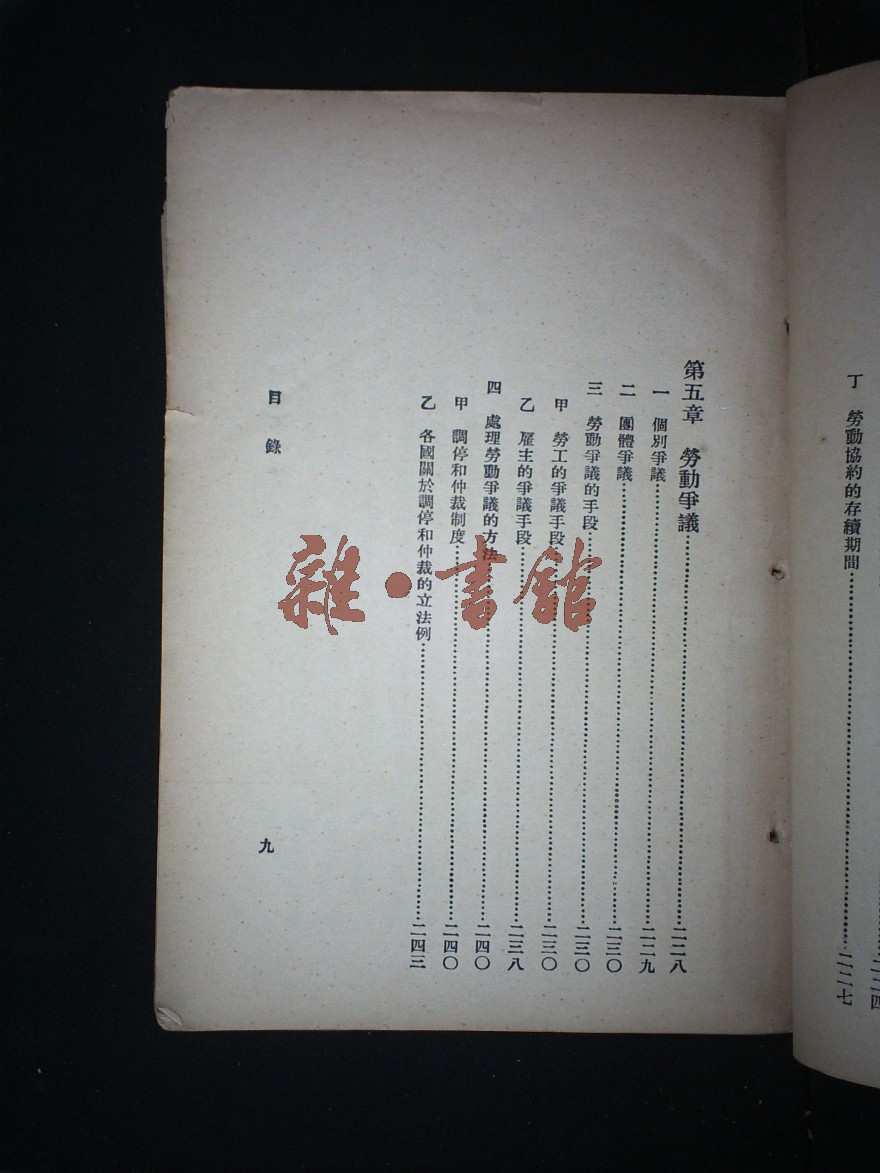 丁 勞動協約的存續期間……二二七
第五章 勞動爭議……二二八
一 個別爭議……二二九
二 團體爭議……二三〇
三 勞動爭議的手段……二三〇
甲 勞工的爭議手段……二三〇
乙 雇主的爭議手段……二三八
四 處理勞動爭議的方法……二四〇
甲 調停和仲裁制度……二四〇
乙 各國關於調停和仲裁的立法例……二四三
目錄
九
雜·書館